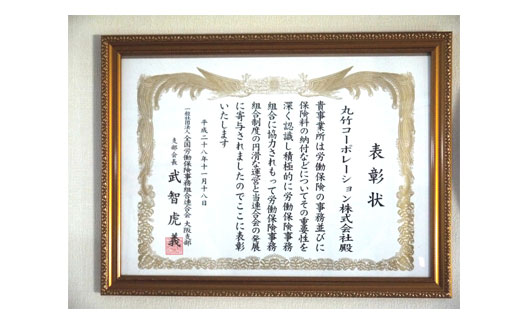 表彰状
丸竹コーポレーション株式会社殿
貴事業所は労働保険の事務並びに
保険料の納付などについてその重要性を
深く認識し積極的に労働保険事務
組合に協力されもって労働保険事務
組合制度の円滑な運営と当連合会の発展
に寄与されましたのでここに表彰
いたします
平成二十八年十一月十八日
一般社団法人全国労働保険事務組合連合会大阪支部
支部会長 武智虎義